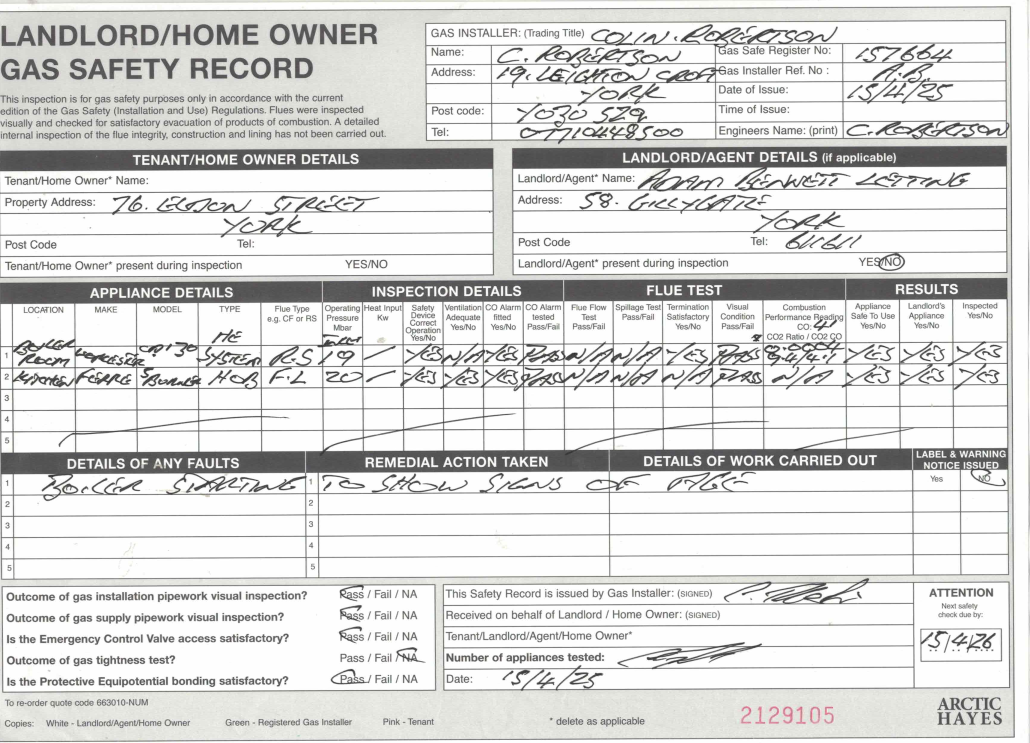 LANDLORD/HOME OWNER
GAS SAFETY RECORD
This inspection is for gas safety purposes only in accordance with the current
edition of the Gas Safety (Installation and Use) Regulations. Flues were inspected
visually and checked for satisfactory evacuation of products of combustion. A detailed
internal inspection of the flue integrity, construction and lining has not been carried out.
GAS INSTALLER: (Trading Title) COLIN. ROBERTSON
Name: C. ROBERTSON Gas Safe Register No: 157664
Address: 19. LEIGHTON CROFT Gas Installer Ref. No : A.B.
YORK Date of Issue: 15/4/25
Post code: YO30 5 Time of Issue:
Tel: 07710448500 Engineers Name: (print) C. ROBERTSON
TENANT/HOME OWNER DETAILS
Tenant/Home Owner* Name:
Property Address: 76. STREET
YORK
Post Code Tel:
Tenant/Home Owner* present during inspection YES/NO
LANDLORD/AGENT DETAILS (if applicable)
Landlord/Agent* Name: ADAM BENNETT LETTING
Address: 58. GILLYGATE
YORK
Post Code Tel: 611611
Landlord/Agent* present during inspection YES/NO
APPLIANCE DETAILS INSPECTION DETAILS FLUE TEST RESULTS
LOCATION MAKE MODEL TYPE Flue Type e.g. CF or RS Operating Pressure Mbar Heat Input Kw Safety Device Correct Operation Yes/No Ventilation Adequate Yes/No CO Alarm fitted Yes/No CO Alarm tested Pass/Fail Flue Flow Test Pass/Fail Spillage Test Pass/Fail Termination Satisfactory Yes/No Visual Condition Pass/Fail Combustion Performance Reading CO: 41 CO2 Ratio / CO2 CO Appliance Safe To Use Yes/No Landlord's Appliance Yes/No Inspected Yes/No
1 BOILER ROOM WORCESTER HE SYSTEM R.S 19 / YES N/A YES PASS N/A N/A YES PASS YES YES YES
2 KITCHEN HOB F.L 20 / YES YES YES PASS N/A N/A N/A PASS N/A YES YES YES
3
4
5
DETAILS OF ANY FAULTS REMEDIAL ACTION TAKEN DETAILS OF WORK CARRIED OUT LABEL & WARNING NOTICE ISSUED
Yes NO
1 BOILER STARTING 1 TO SHOW SIGNS OF AGE
2 2
3 3
4 4
5 5
Outcome of gas installation pipework visual inspection? Pass / Fail / NA
Outcome of gas supply pipework visual inspection? Pass / Fail / NA
Is the Emergency Control Valve access satisfactory? Pass / Fail / NA
Outcome of gas tightness test? Pass / Fail / NA
Is the Protective Equipotential bonding satisfactory? Pass / Fail / NA
This Safety Record is issued by Gas Installer: (SIGNED)
Received on behalf of Landlord / Home Owner: (SIGNED)
Tenant/Landlord/Agent/Home Owner*
Number of appliances tested:
Date: 15/4/25
ATTENTION
Next safety
check due by:
15/4/26
To re-order quote code 663010-NUM
Copies: White - Landlord/Agent/Home Owner Green - Registered Gas Installer Pink - Tenant * delete as applicable
2129105
ARCTIC
HAYES